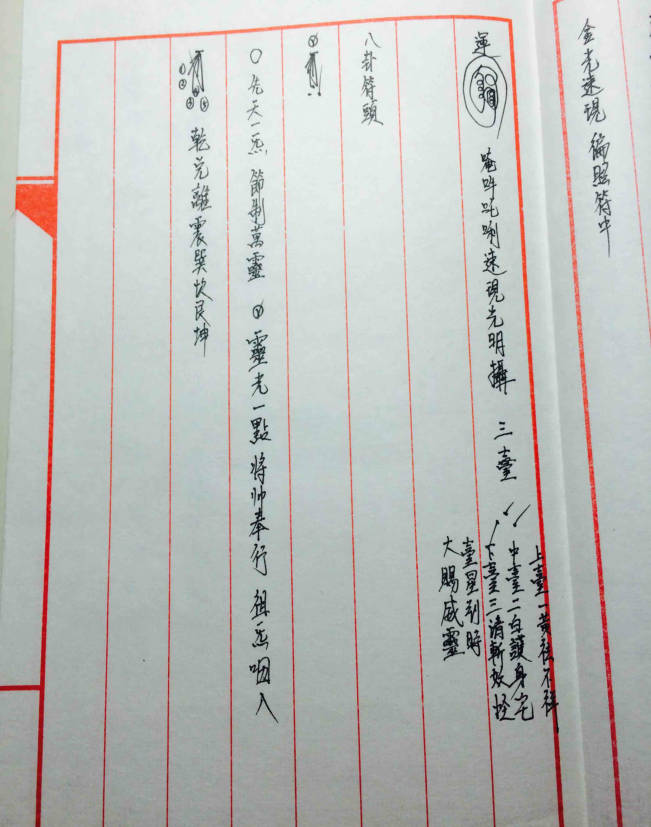 金光速現 徧照符中
運 唵吽吒唎速現光明攝 三臺
上臺一黃祛不祥
中臺二白護身宅
下臺三清斬妖怪
臺星到時
大賜威靈
八卦符頭
〇先天一炁 節制萬靈 靈光一點 將帅奉行 祖炁咽入
乾兌離震巽坎艮坤